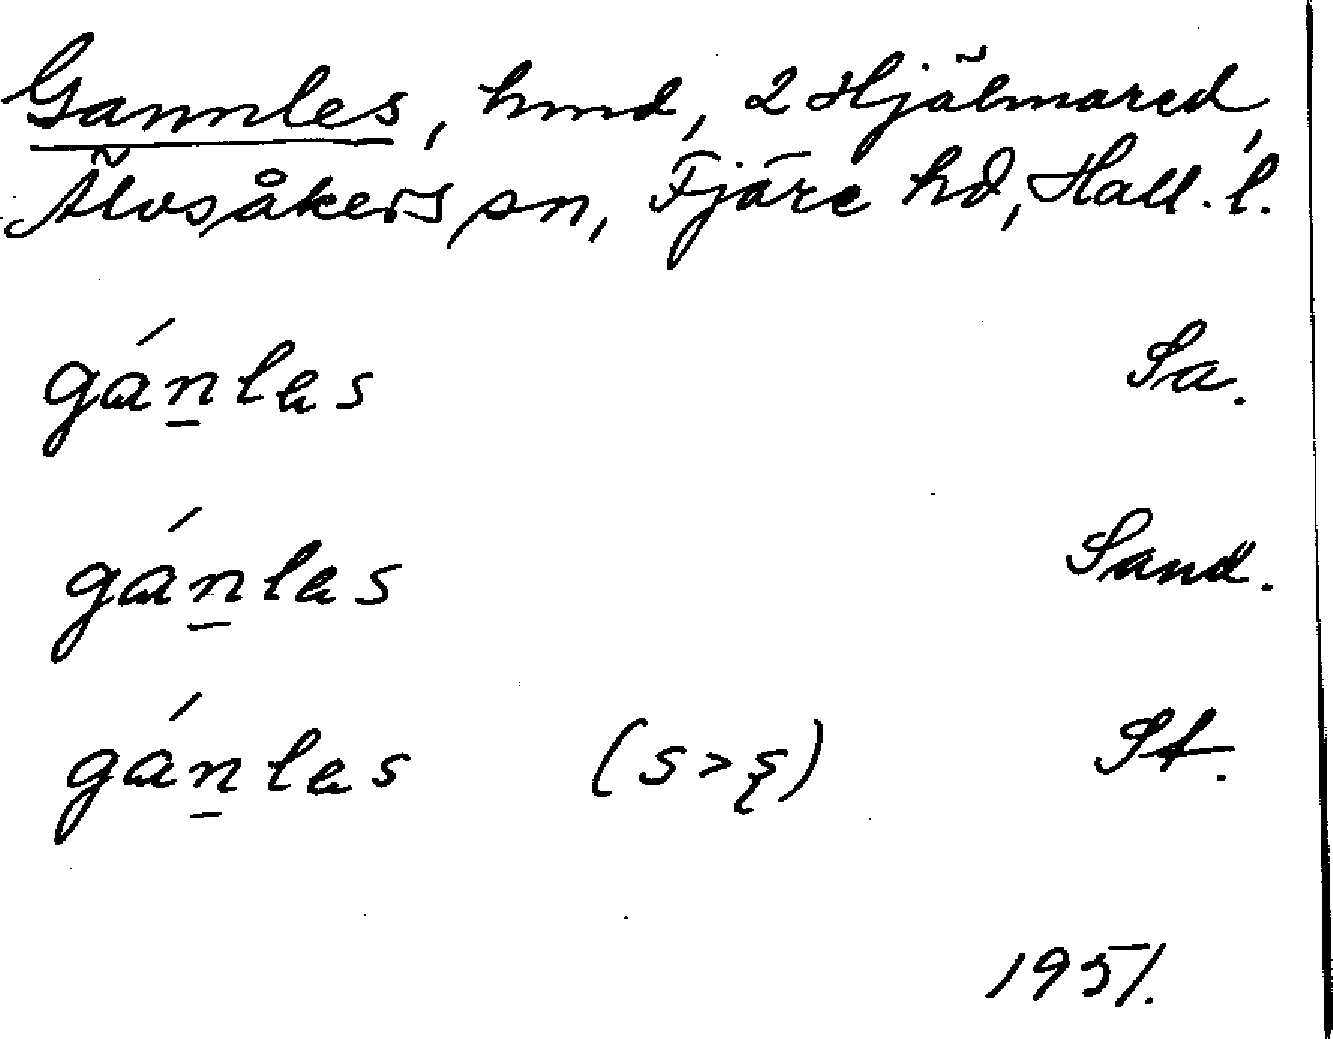 Gannles, hmd, 2 Hjälmared,
Älvsåkers sn, Fjäre hd, Hall. l.
gánles Sa.
gánles Sand.
gánles (s>ş) St.
1951.